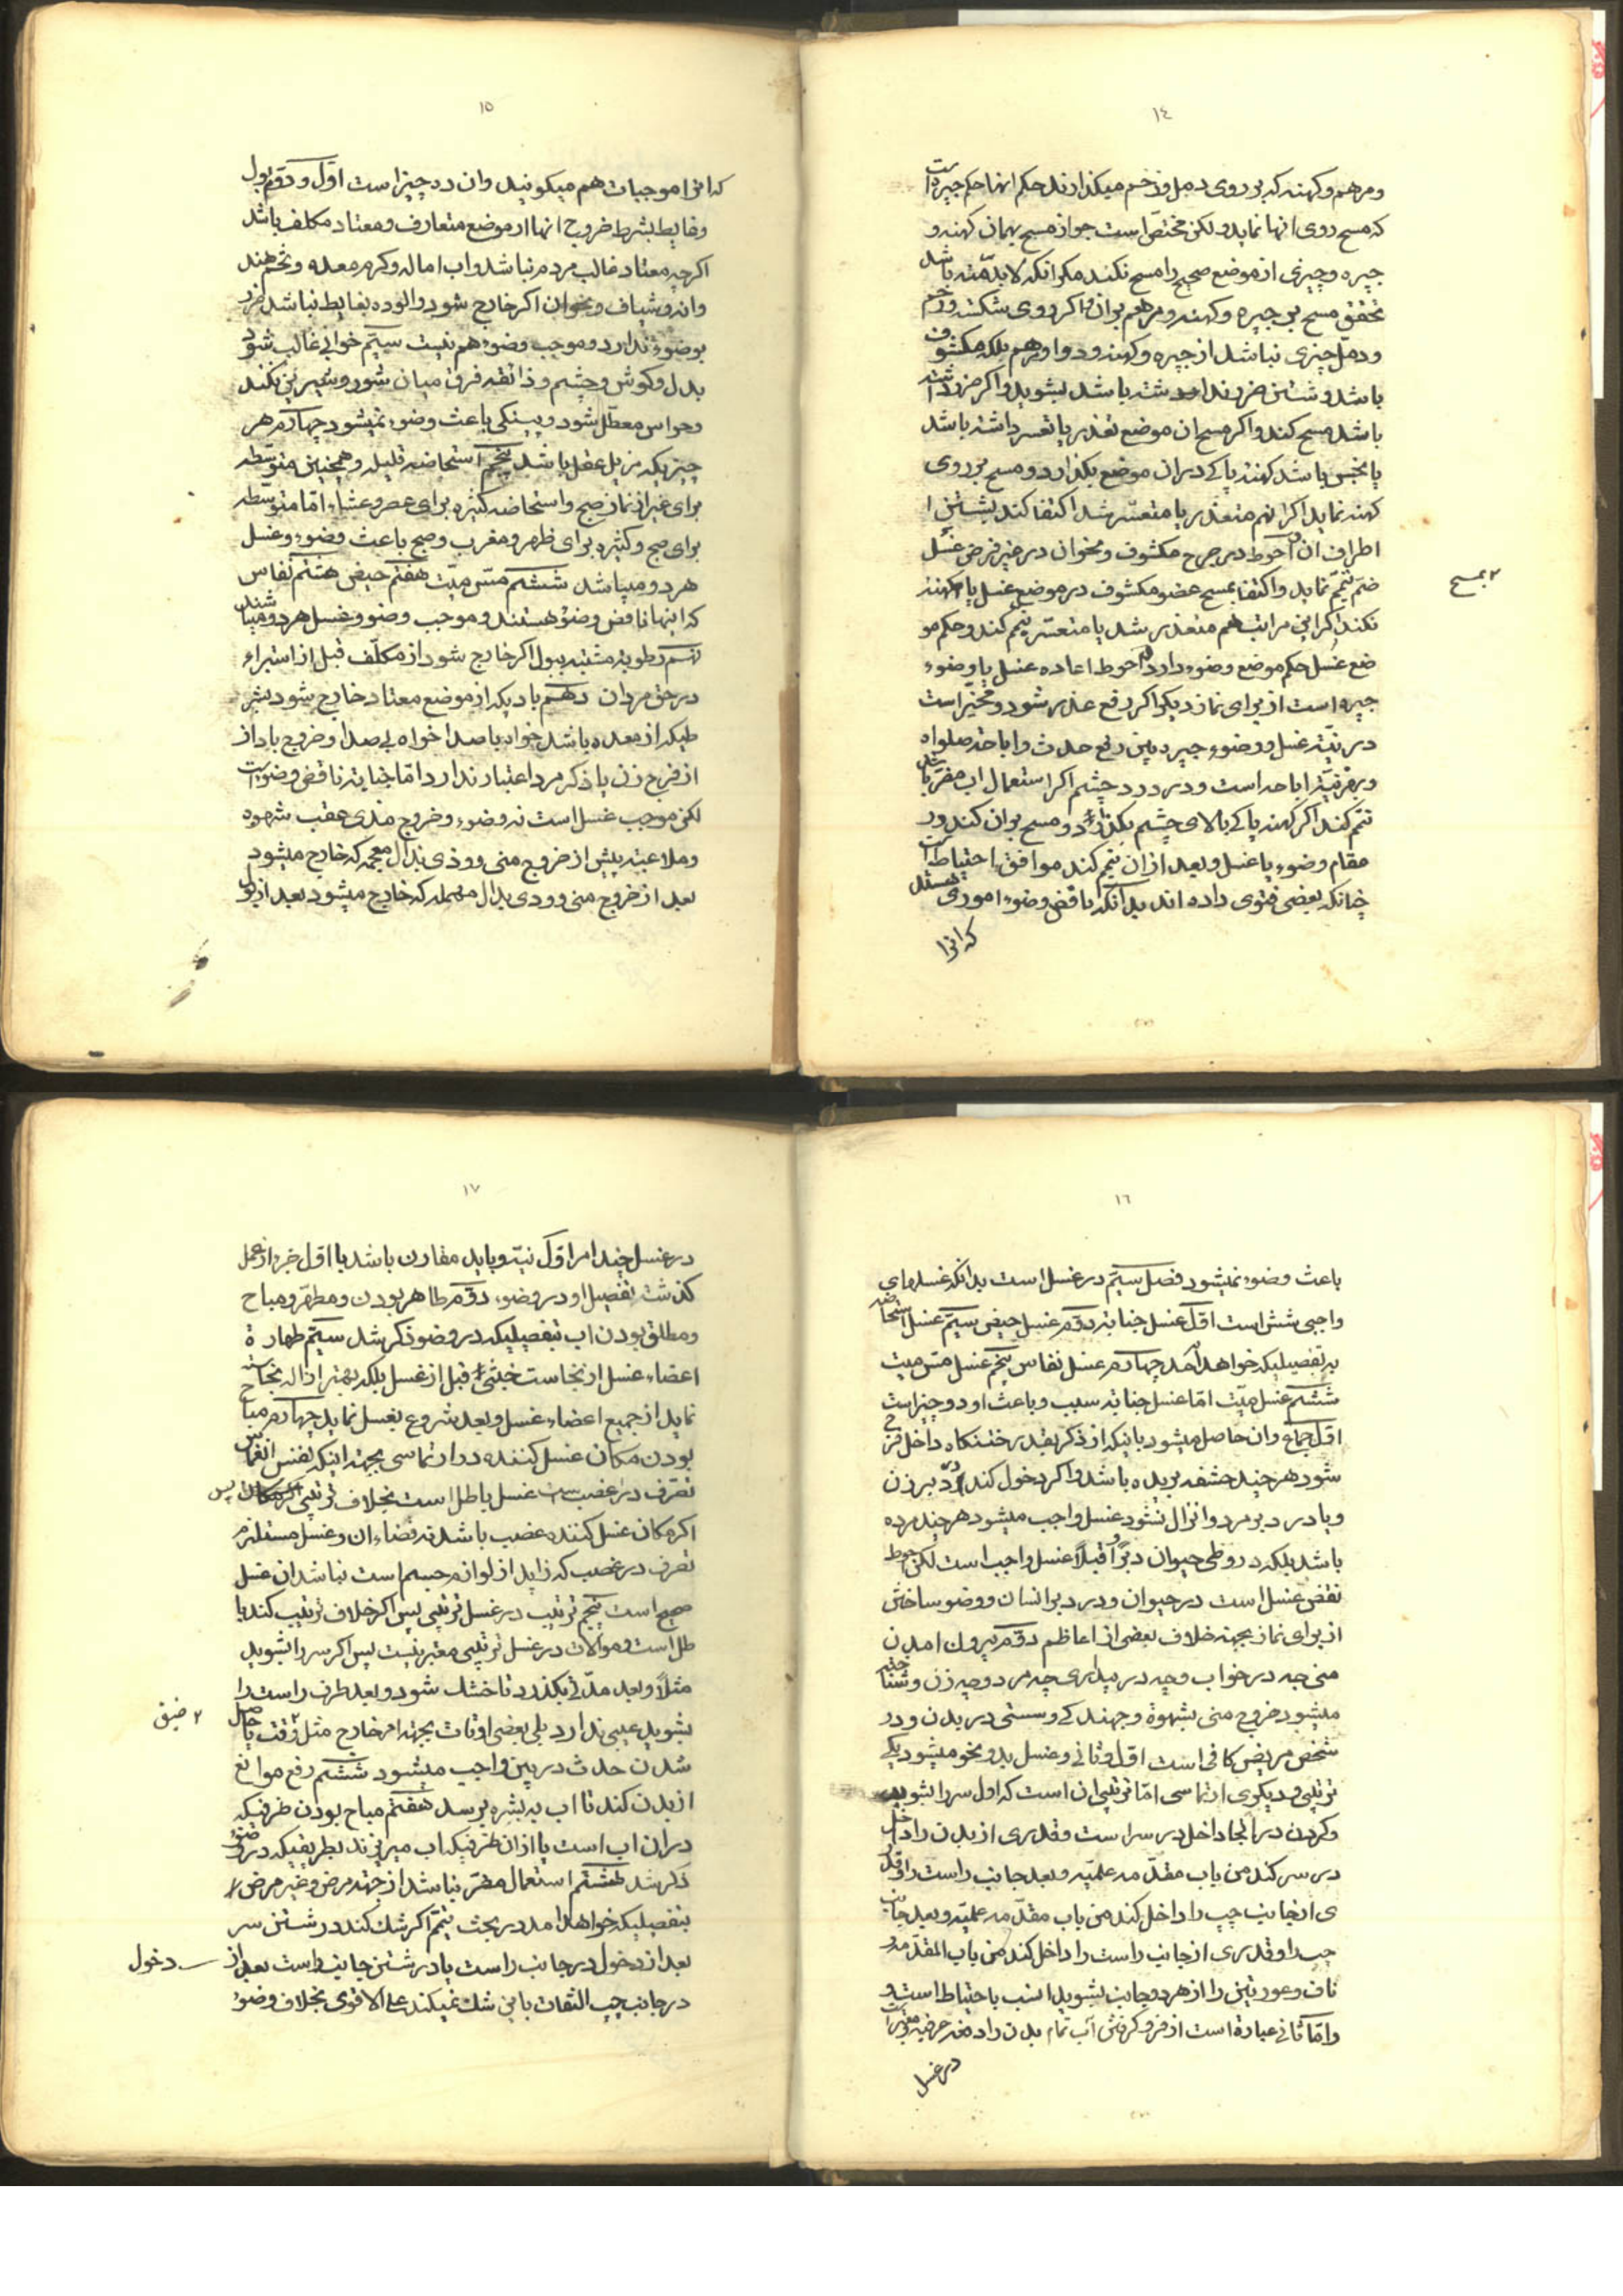 ١٤
ومرهم وکهنه که بر روی دمل و زخم میکذارند حکم انها حکم جبیره است
که مسح روی انها نماید ولکن مختص است جواز مسح بهمان کهنه و
جبیره وچیزی از موضع صحیح را مسح نکند مکر انکه لابد منه باشد
تحقق مسح بر جبیره وکهنه ومرهم بر ان واکر روی شکسته وزخم
ودمل چیزی نباشد از جبیره وکهنه ودوا ومرهم بلکه مکشوف
باشد وشستن ضرر نداشته باشد بشوید واکر ضرر داشته
باشد مسح کند واکر مسح ان موضع تعذر یا تعسر داشته باشد
یا نجس باشد کهنه پاکی در ان موضع بکذارد ومسح بر روی
کهنه نماید اکر انهم متعذر یا متعسر شد اکتفا کند بشستن
اطراف ان واحوط در جرح مکشوف ونحو ان در غیر فرض غسل
ضم تیمم نماید واکتفا بمسح عضو مکشوف در موضع غسل یا کهنه
٢ بمسح
نکند اکر این مراتب هم متعذر شد یا متعسر تیمم کند وحکم مو
ضع غسل حکم موضع وضوء دارد واحوط اعاده غسل یا وضوء
جبیره است از برای نماز دیکر اکر رفع عذر شود ومخیر است
در نیت غسل ووضوء جبیره بین رفع حدث واباحة صلواة
وبهر نیة اباحه است ودر درد چشم اکر استعمال اب مضر باشد
تیمم کند اکر کهنه پاکی بالای چشم بکذارد ومسح بر ان کند در
مقام وضوء یا غسل وبعد از ان تیمم کند موافق احتیاط است
چنانکه بعضی فتوی داده اند بدانکه ناقض وضوء اموری هستند
که انرا
١٥
که انرا موجبات هم میکویند وان ده چیز است اول ودویم بول
وغایط بشرط خروج انها از موضع متعارف ومعتاد مکلف باشد
اکرچه معتاد غالب مردم نباشد واب اماله وکرم معده وتخم هند
وانه وشیاف ونحو ان اکر خارج شود والوده بغایط نباشد ضرر
بوضوء ندارد وموجب وضوء هم نیست سیم خوابی غالب شود
بدل وکوش وچشم وذائقه فرق میان شور وشیرین نکند
وحواس معطل شود وپینکی باعث وضوء نمیشود چهارم هر
چیزیکه مزیل عقل باشد پنجم استحاضه قلیله وهمچنین متوسطه
برای غیر از نماز صبح واستحاضه کثیره برای عصر وعشاء اما متوسطه
برای صبح وکثیره برای ظهر ومغرب وصبح باعث وضوء وغسل
هر دو میباشد ششم مس میت هفتم حیض هشتم نفاس
که اینها ناقض وضوء هستند وموجب وضو وغسل هر دو میباشند
نهم رطوبة مشتبه ببول اکر خارج شود از مکلف قبل از استبراء
در حق مردان دهم بادیکه از موضع معتاد خارج شود بشر
طیکه از معده باشد خواه باصدا خواه بی صدا وخروج باد از
از فرج زن یا ذکر مرد اعتبار ندارد اما جنابة ناقض وضو است
لکن موجب غسل است نه وضوء وخروج مذی عقب شهوه
وملاعبه پیش از خروج منی ووذی بذال معجمه که خارج میشود
بعد از خروج منی وودی بدال مهمله که خارج میشود بعد از بول
١٦
باعث وضوء نمیشود فصل سیم در غسل است بدانکه غسلهای
واجبی شش است اول غسل جنابة دوم غسل حیض سیم غسل استحاضه
به تفصیلیکه خواهد آمد چهارم غسل نفاس پنجم غسل مس میت
ششم غسل میت اما غسل جنابة سبب وباعث او دو چیز است
اول جماع وان حاصل میشود باینکه از ذکر بقدر ختنکاه داخل فرج
شود هر چند حشفه بریده باشد واکر دخول کند در دبر زن
ویا در دبر مرد وانزال نشود غسل واجب میشود هر چند مرده
باشد بلکه در وطی حیوان دبرا وقبلا غسل واجب است لکن احوط
نقض غسل است در حیوان ودر دبر انسان ووضو ساختن
از برای نماز بجهة خلاف بعضی از اعاظم دوم بیرون امدن
منی چه در خواب وچه در بیداری چه مرد وچه زن وشناخته
میشود خروج منی بشهوة وجهندکی وسستی در بدن ودر
شخص مریض کافی است اول وثانی وغسل بدو نحو میشود یکی
ترتیبی ودیکری ارتماسی اما ترتیبی ان است که اول سر را بشوید
وکردن در انجا داخل در سر است وقدری از بدن را داخل
در سر کند من باب مقدمه علمیه وبعد جانب راست را وقدر
ی از جانب چپ را داخل کند من باب مقدمه علمیه وبعد جانب
چپ را وقدری از جانب راست را داخل کند من باب المقدمه و
ناف وعورتین را از هر دو جانب بشوید انسب باحتیاط است و
واما ثانی عبارة است از فرو کرفتن آب تمام بدن را دفعه عرفیه ومعتبر است
در غسل
١٧
در غسل چند امر اول نیت وباید مقارن باشد با اول جزء از عمل
کذشت تفصیل او در وضوء دوم طاهر بودن ومطهر ومباح
ومطلق بودن اب بتفصیلیکه در وضو ذکر شد سیم طهارة
اعضاء غسل از نجاست خبثی قبل از غسل بلکه بهتر ازاله نجاست
نماید از جمیع اعضاء غسل وبعد شروع بغسل نماید چهارم مباح
بودن مکان غسل کننده در ارتماسی بجهة اینکه بنفس انغماس
تصرف در غصب است غسل باطل است بخلاف ترتیبی پس
اکر مکان غسل کننده غصب باشد نه فضاء ان وغسل مستلزم
تصرف در غصب که زاید از لوازم جسم است نباشد ان غسل
صحیح است پنجم ترتیب در غسل ترتیبی پس اکر خلاف ترتیب کند با
طل است وموالات در غسل ترتیبی معتبر نیست پس اکر سر را بشوید
مثلا وبعد مدتی بکذرد تا خشک شود وبعد طرف راست را
بشوید عیبی ندارد بلی بعضی اوقات بجهة امر خارج مثل وقت یا حاصل
٢ ضیق
شدن حدث در بین واجب میشود ششم رفع موانع
از بدن کند تا اب به بشره برسد هفتم مباح بودن ظرفیکه
در ان اب است یا از ان ظرفیکه اب میریزند بطریقیکه در وضوء
ذکر شد هشتم استعمال مضر نباشد از جهة مرض وغیر مرض
بتفصیلیکه خواهد امد در بحث تیمم اکر شک کند در شستن سر
بعد از دخول در جانب راست یا در شستن جانب راست بعد از
دخول
در جانب چپ التفات باین شک نمیکند علی الاقوی بخلاف وضوء